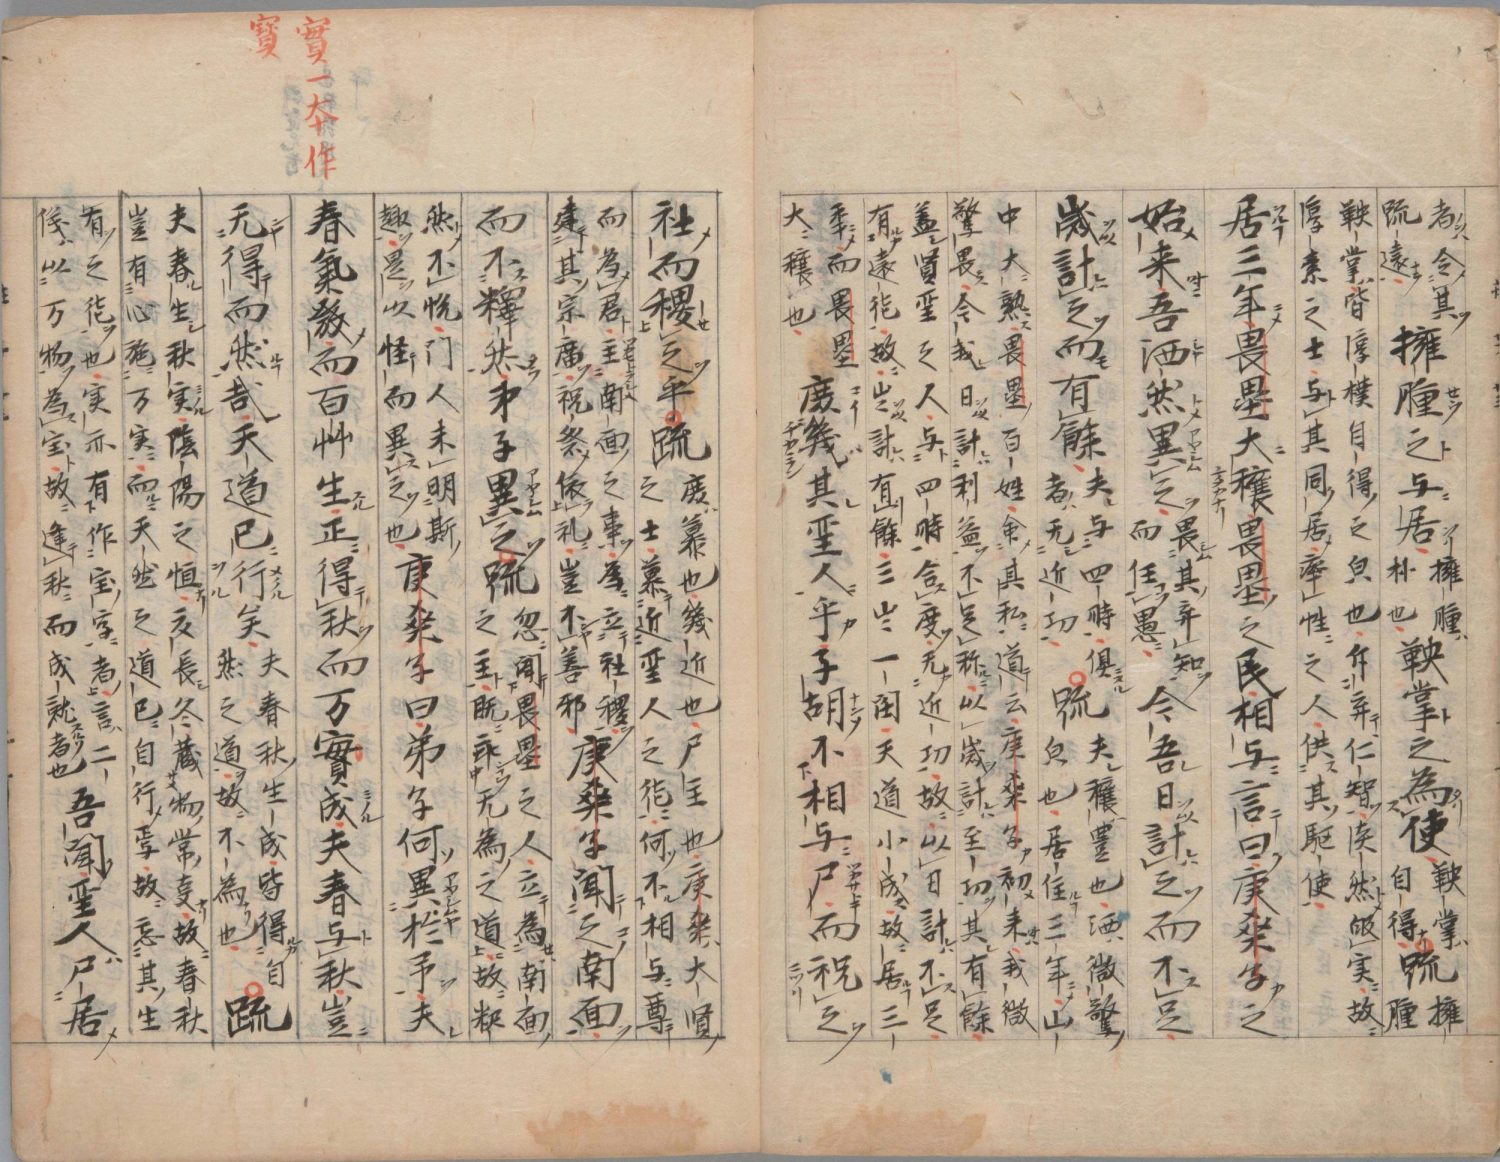 者令其
疏遠
擁腫之与居
擁腫
朴也
鞅掌之為使
鞅掌
自得
疏
擁
腫
鞅掌皆淳樸自得之皃也斥弃仁智淡然皈実故
淳素之士与其同居率性之人供其駆使
居三年畏壘大穰畏壘之民相与言曰庚桑子之
始来吾洒然異之
畏其弃知
而任愚
今吾日計之而不足
歳計之而有餘
夫与四時俱
者无近功
疏
夫穰豊也洒微驚
皃也居住三年山
中大熟畏壘百姓僉其私道云庚桑子初来我微
驚畏今我日計利益不足称以歳計至功其有餘
蓋賢聖之人与四時合度无近功故以日計不足
有遠徳故歳計有餘三歳一閏天道小成故居三
季而畏壘
大穰也
庶幾其聖人乎子胡不相与尸而祝之
社而稷之乎
疏
庶慕也幾近也尸主也庚桑大賢
之士慕近聖人之徳何不相与尊
而為君主南面之事為立社稷
建其宗廟祝祭依礼豈不善邪
庚桑子聞之南面
而不釋然弟子異之
疏
忽聞畏壘之人立為南面
之主既乖无為之道故釈
然不悦門人未明斯
趣是以怪而異之也
庚桑子曰弟子何異於予夫
春氣發而百艸生正得秋而万實成夫春与秋豈
无得而然哉天道已行矣
夫春秋生成皆得自
然之道故不為也
疏
夫春生秋実陰陽之恒夏長冬蔵物常享故春秋
豈有心施万実而天然之道已自行享故忘其生
有之徳也実亦有作宝字者言二
儀以万物為宝故逢秋而成就者也
吾聞聖人尸居
實一本作
寳